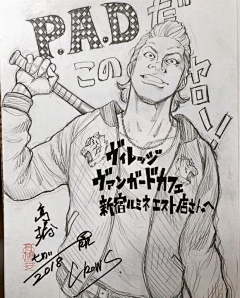 P.A.D だ
この ヤロー!!
ヴィレッヂ
ヴァンガードカフェ
新宿ルミネエスト店さんへ
髙橋
ヒロシ
2018
CROWS